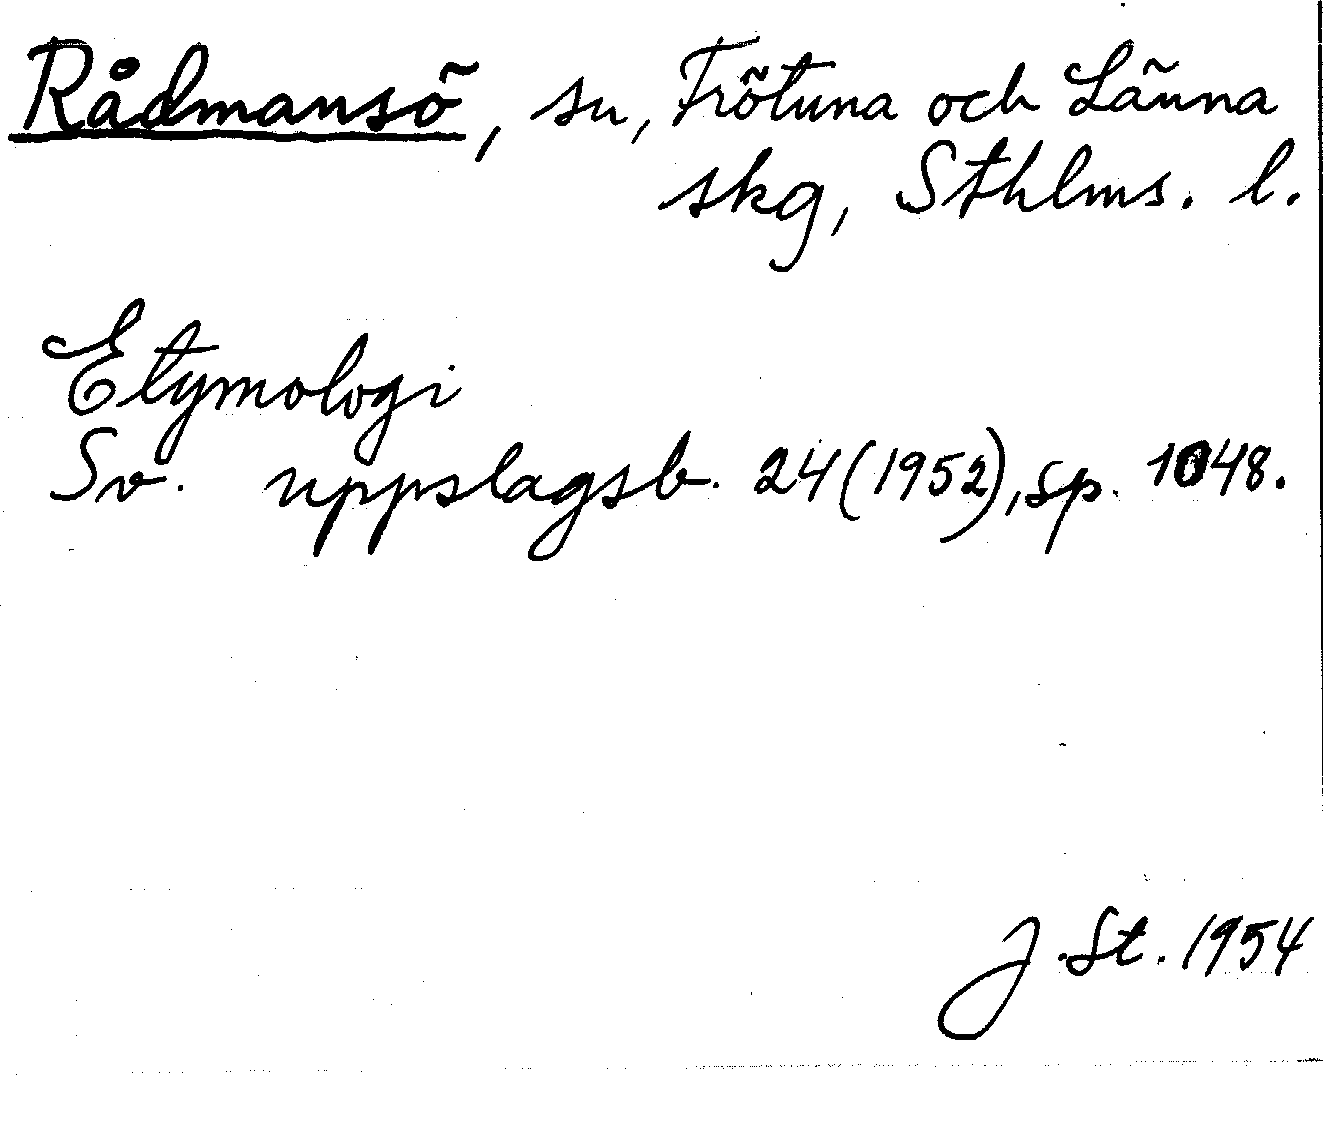 Rådmansö, sn, Frötuna och Länna
skg, Sthlms. l.
Etymologi
Sv. uppslagsb. 24 (1952), sp. 1048.
J. St. 1954